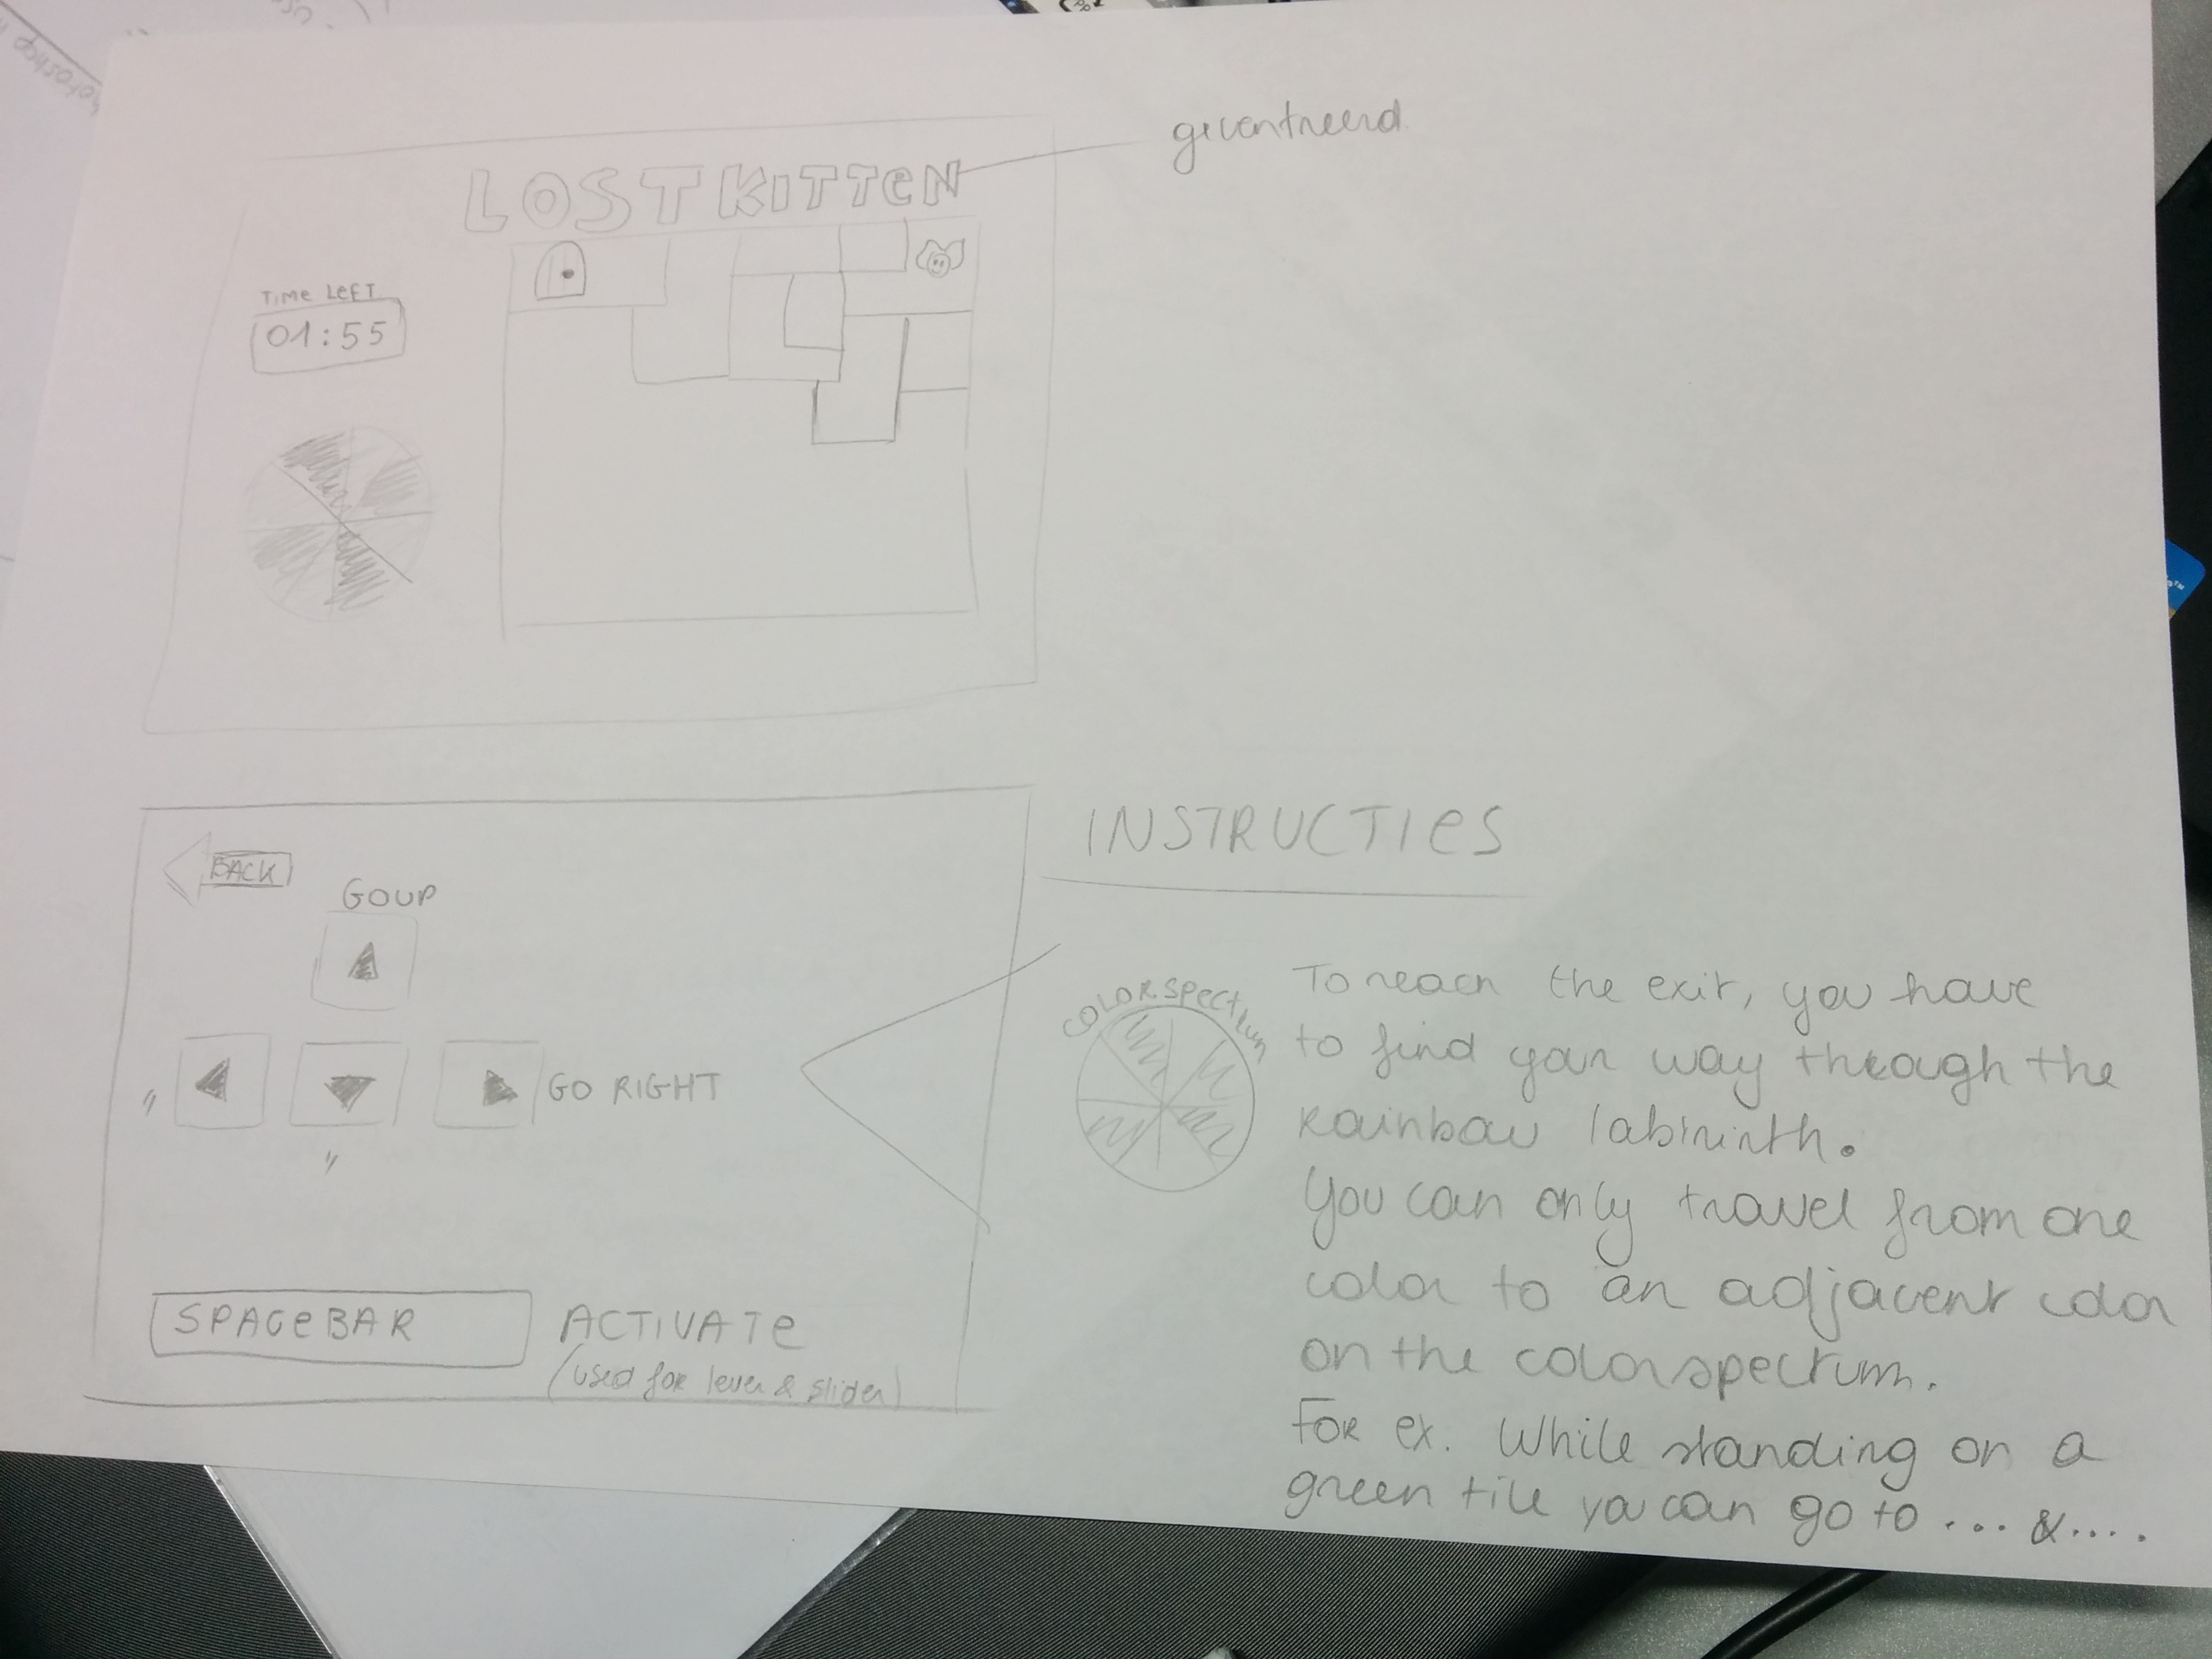 gecentreerd
LOST KITTEN
TIME LEFT
01:55
INSTRUCTIES
BACK
GO UP
COLORSPECTRUM
GO RIGHT
"
"
SPACEBAR
ACTIVATE
(used for lever & slider)
To reach the exit, you have
to find your way through the
Rainbow labirinth.
You can only travel from one
color to an adjacent color
on the colorspectrum.
For ex. While standing on a
green tile you can go to ... & ....